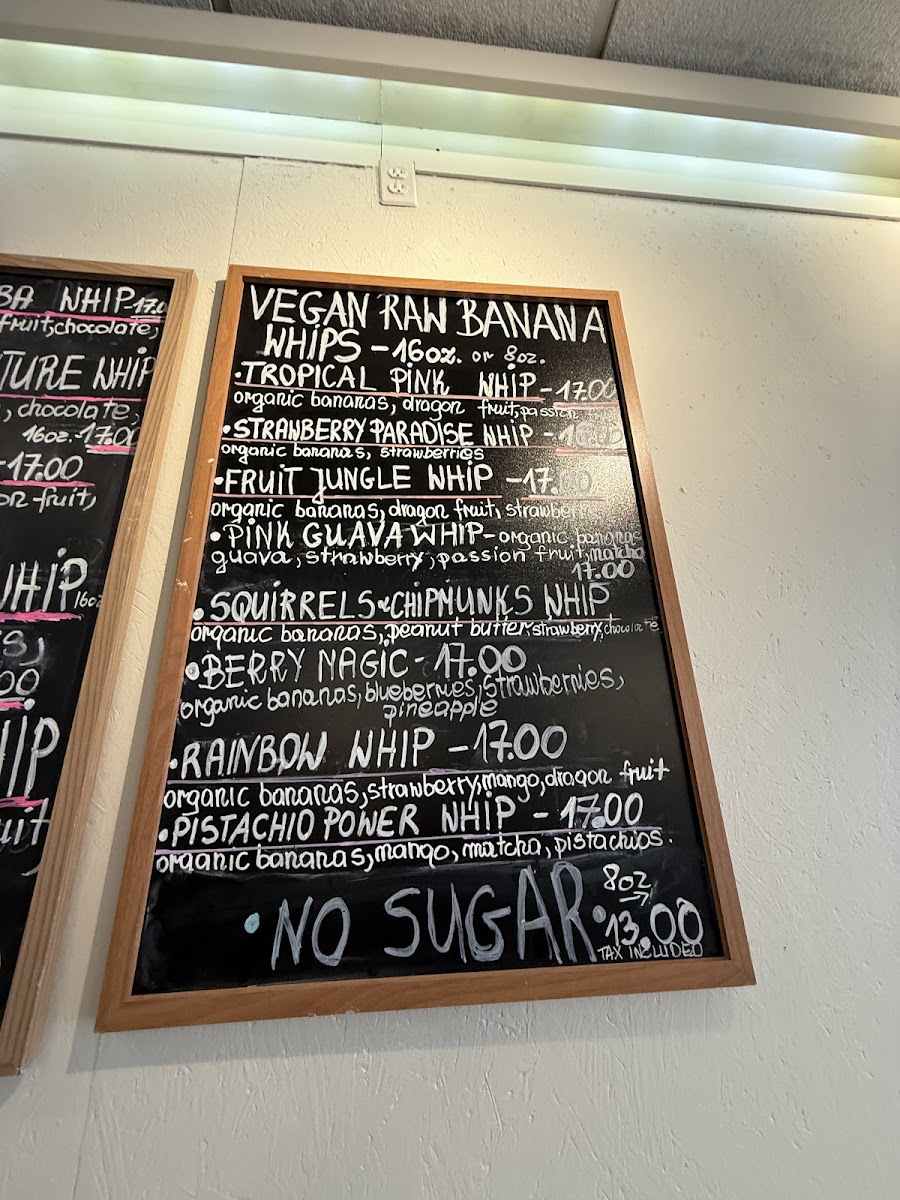 BA WHIP-17.0
fruit, chocolate,
TURE WHIP
, chocolate,
16oz. 17.00
-17.00
on fruit,
WHIP 16oz
s,
00
HIP
uit,
VEGAN RAW BANANA
WHIPS - 16oz. or 8oz.
·TROPICAL PINK WHIP - 17.00
organic bananas, dragon fruit, passion
·STRAWBERRY PARADISE WHIP - 16.00
organic bananas, strawberries
·FRUIT JUNGLE WHIP - 17.00
organic bananas, dragon fruit, strawberr
·PINK GUAVA WHIP - organic bananas
guava, strawberry, passion fruit, matcha
17.00
·SQUIRRELS & CHIPMUNKS WHIP
organic bananas, peanut butter, strawberry, chocolate
·BERRY MAGIC - 17.00
organic bananas, blueberries, strawberries,
pineapple
·RAINBOW WHIP - 17.00
organic bananas, strawberry, mango, dragon fruit
·PISTACHIO POWER WHIP - 17.00
organic bananas, mango, matcha, pistachios.
·NO SUGAR·
8oz →
13.00
TAX INCLUDED